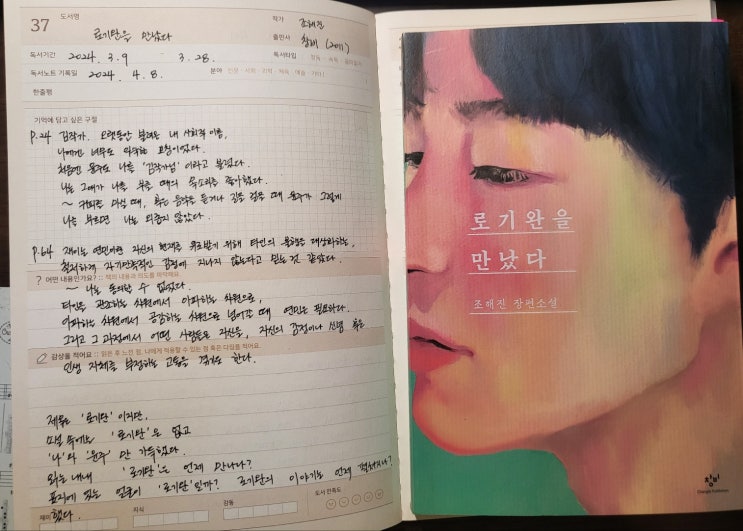 37
도서명
로기완을 만났다
작가 조해진
출판사 창비 (2011)
독서기간 2024. 3. 9 - 3. 28.
독서타입 정독 · 속독 ·
독서노트 기록일 2024. 4. 8.
분야 인문 · 사회 · 과학 · 예술 · 기타 (
한줄평
기억에 담고 싶은 구절
P.24 김작가. 오랫동안 불려온 내 사회적 이름,
나에게는 너무도 익숙한 호칭이었다.
처음엔 윤주도 나를 '김작가님'이라고 불렀다.
나는 그 애가 나를 부를 때의 목소리를 좋아했다.
~ 커피를 마실 때, 혹은 음악을 듣거나 길을 걸을 때 윤주가 그렇게
나를 부르면 나는 외롭지 않았다.
P.64 재이는 연민이란 자신의 현재를 위로받기 위해 타인의 불행을 대상화하는,
철저하게 자기만족적인 감정에 지나지 않는다고 믿는 것 같았다.
? 어떤 내용인가요? :: 책의 내용과 의도를 파악해요.
~ 나는 동의할 수 없었다.
타인을 관조하는 차원에서 아파하는 차원으로,
아파하는 차원에서 공감하는 차원으로 넘어갈 때 연민은 필요하다.
그리고 그 과정에서 어떤 사람들은 자신을, 자신의 감정이나 신념 혹은
감상을 적어요 :: 읽은 후 느낀 점, 나에게 적용할 수 있는 점 혹은 다짐을 적어요.
인생 자체를 부정하는 고통을 겪기도 한다.
제목은 '로기완' 이지만,
소설 속에는 '로기완'은 없고
'나'와 '윤주' 만 가득했다.
읽는 내내 '로기완'은 언제 만나나?
표지에 있는 얼굴이 '로기완'일까? 로기완의 이야기는 언제 펼쳐지나?
했다.
재미
지식
감동
도서 만족도
로기완을
만났다
조해진 장편소설
창비
Changbi Publishers